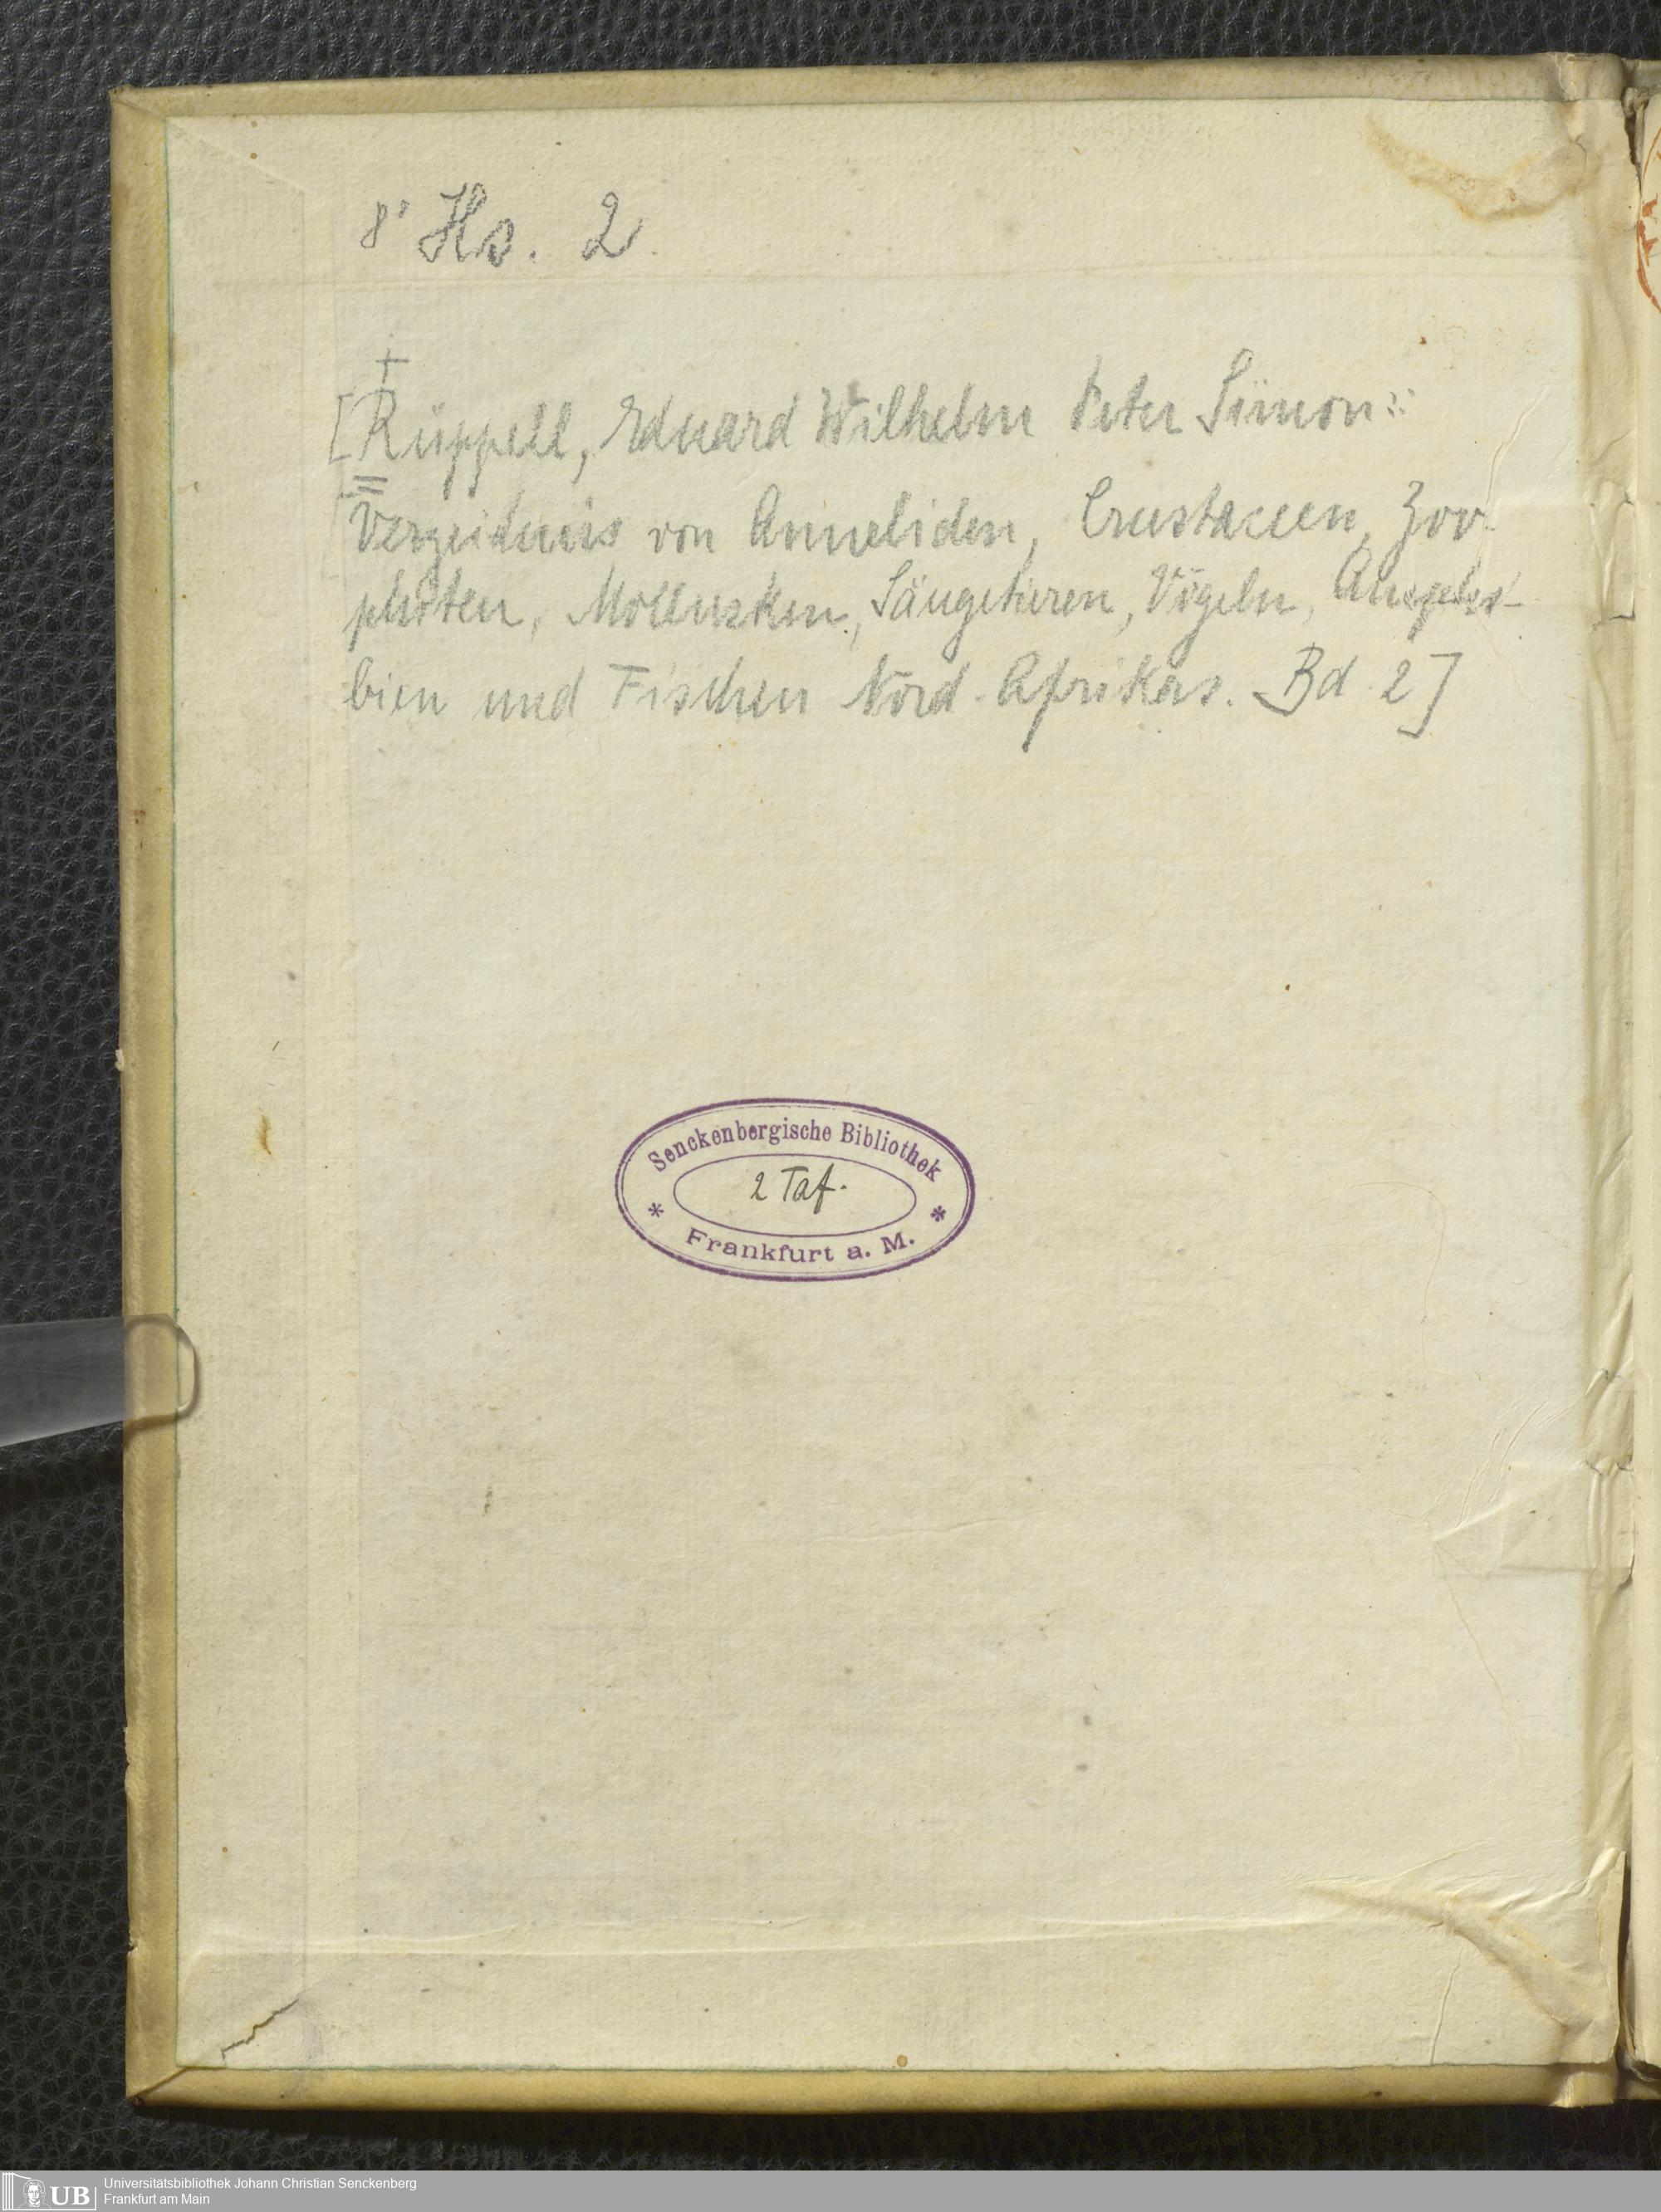 8° Hs. 2.
[Rüppell, Eduard Wilhelm Peter Simon:
Verzeichnis von Anneliden, Crustaceen, Zoo-
phÿten, Mollusken, Säugetieren, Vögeln, Amphi-
bien und Fischen Nord-Afrikas. Bd 2]
Senckenbergische Bibliothek
2 Taf.
* Frankfurt a. M. *
UB
Universitätsbibliothek Johann Christian Senckenberg
Frankfurt am Main